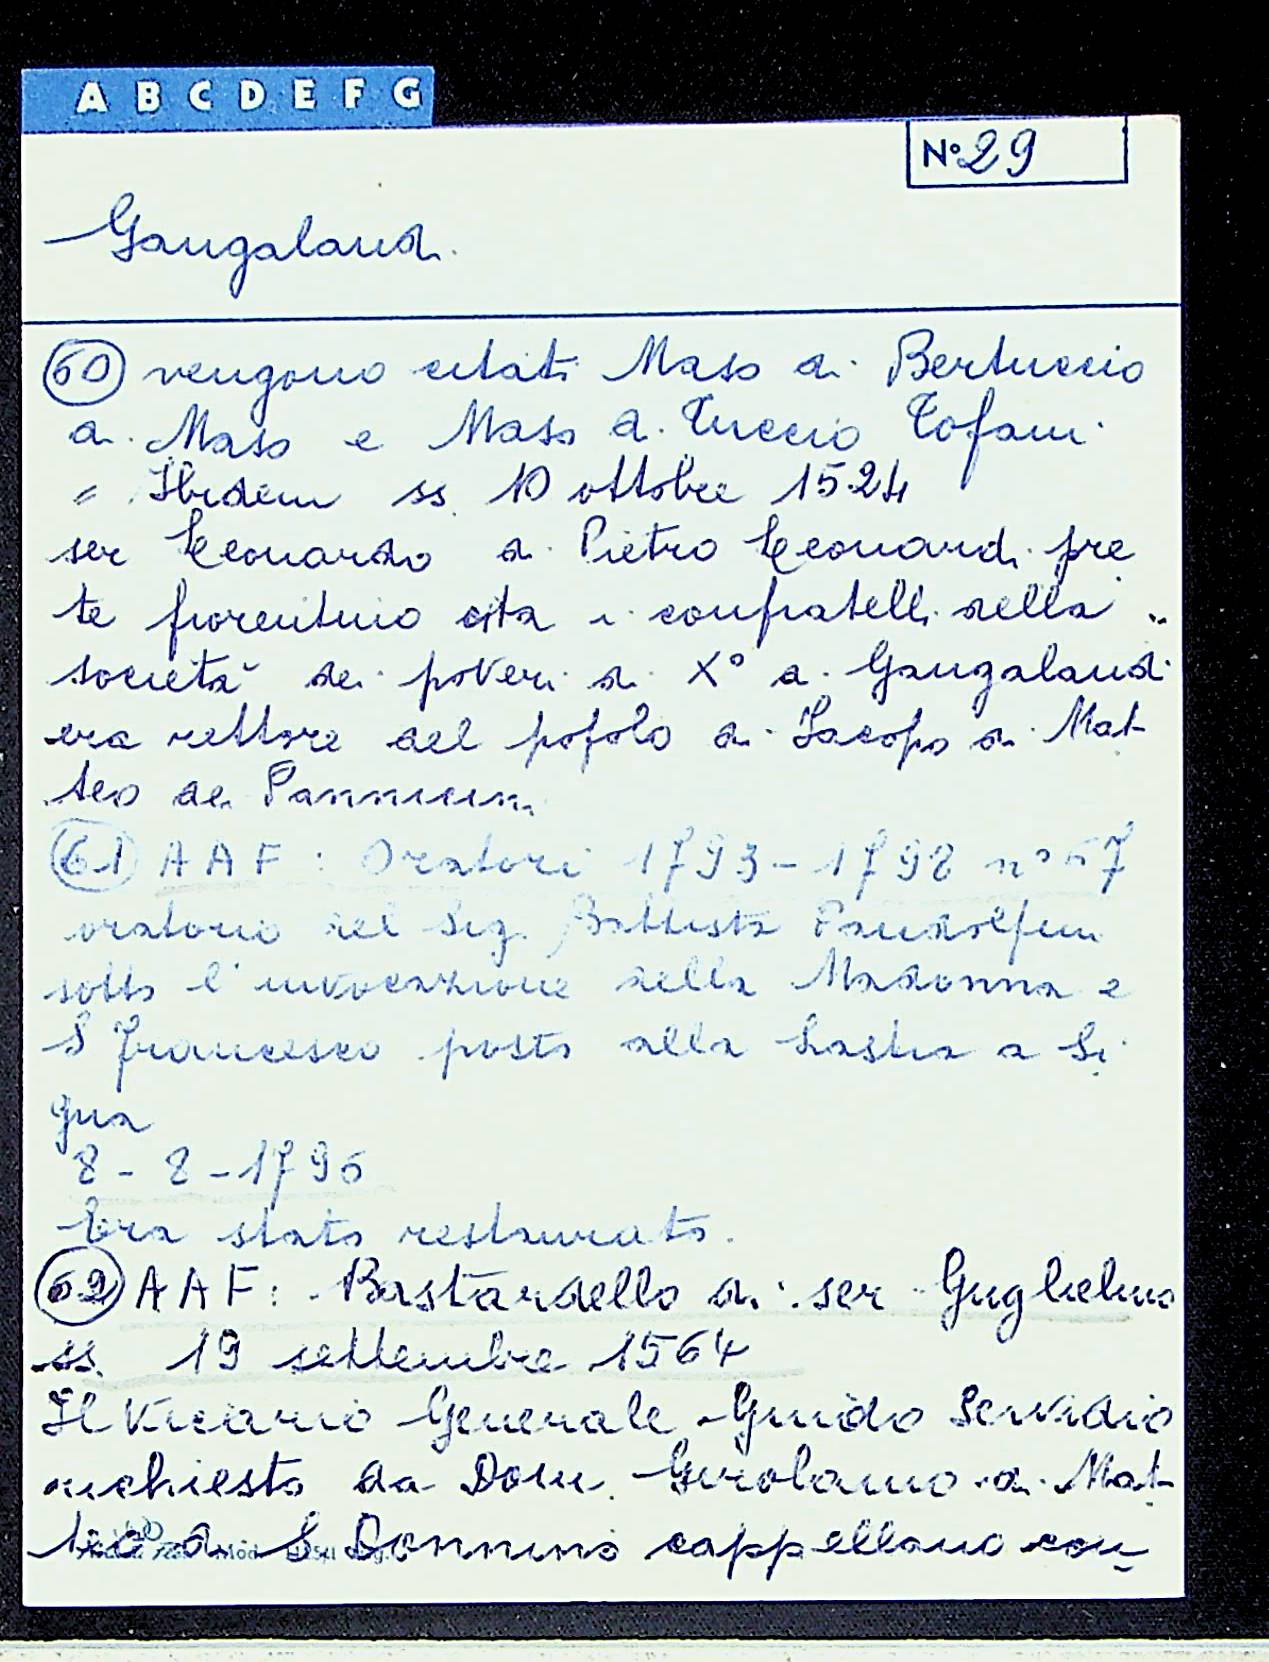 A B C D E F G
N° 29
Gangalandi
60 vengono citati Maso di Bertuccio
di Maso e Maso di Tuccio Tofani
= Ibidem ss. 10 ottobre 1524
ser Leonardo di Pietro Leonardi pre
te fiorentino cita i confratelli della
società dei poveri di X° a Gangalandi
era rettore del popolo di Jacopo di Mat
teo dei Pannicini
61 AAF: Oratori 1793-1798 n° 67
oratorio del Sig. Battista Pandolfini
sotto l'invocazione della Madonna e
S Francesco posto alla Lastra a Si
gna
8-8-1796
Era stato restaurato.
62 AAF: Bastardello di ser Guglielmo
ss. 19 settembre 1564
Il Vicario Generale Guido Servidio
richiesto da Dom. Girolamo di Mat
teo di S Donnino cappellano con